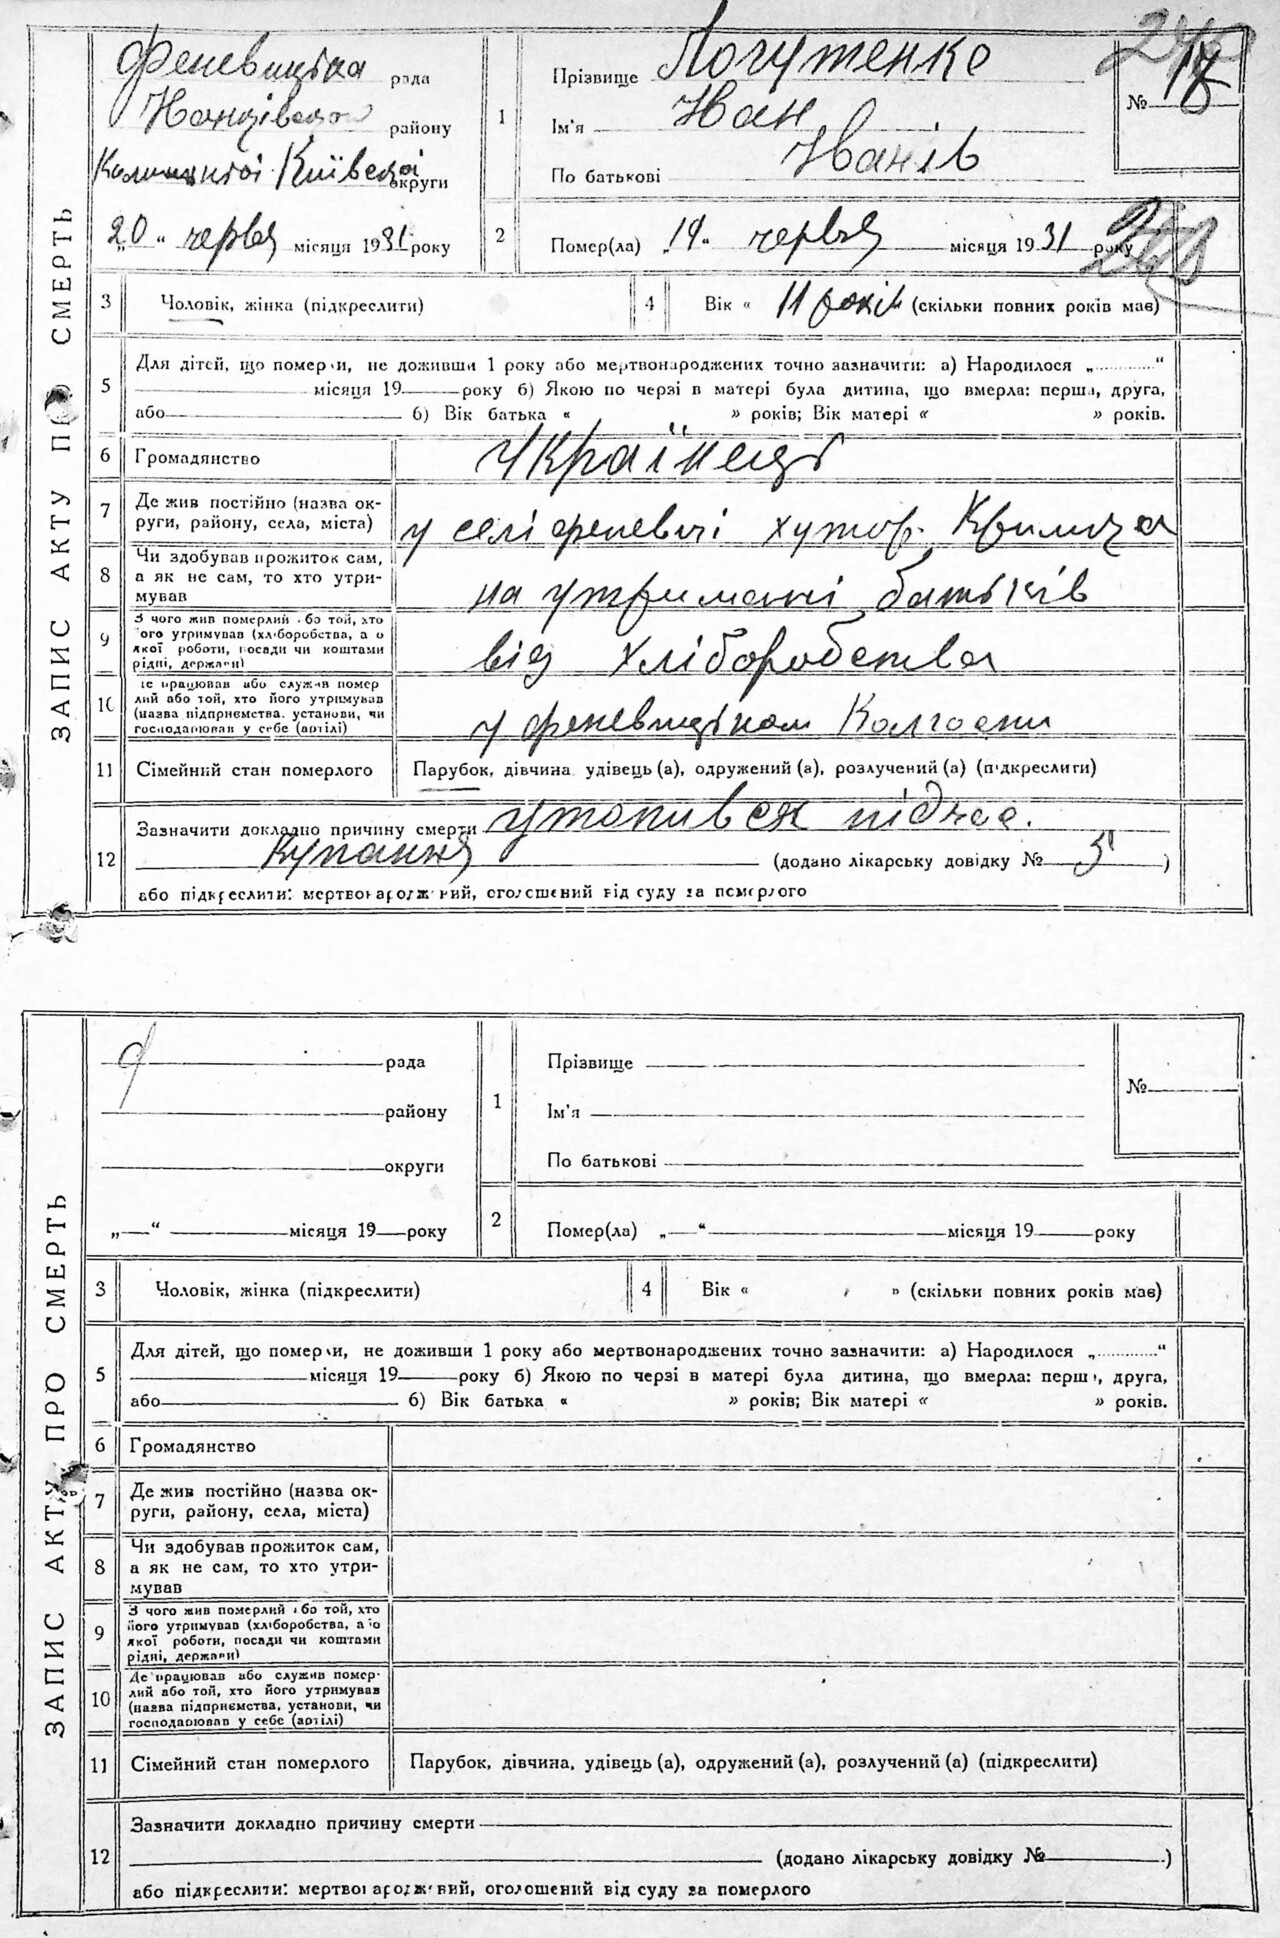 ЗАПИС АКТУ ПРО СМЕРТЬ
Феневицька рада
району
Київської округи
„20“ червня місяця 1931 року
1
Прізвище
Ім'я Іван
По батькові Іванів
№ 17
2
Помер(ла) „19“ червня місяця 1931 року
3 Чоловік, жінка (підкреслити)
4 Вік « 11 років (скільки повних років має)
5
Для дітей, що померли, не доживши 1 року або мертвонароджених точно зазначити: а) Народилося „...........“
місяця 19 року б) Якою по черзі в матері була дитина, що вмерла: перша, друга,
або б) Вік батька « » років; Вік матері « » років.
6 Громадянство українець
7 Де жив постійно (назва ок-
руги, району, села, міста)
у селі феневичі хутор.
8 Чи здобував прожиток сам,
а як не сам, то хто утри-
мував
на утриманні батьків
9 З чого жив померлий або той, хто
його утримував (хліборобства, або
якої роботи, посади чи коштами
рідні, держави)
від хліборобства
10 Де працював або служив помер
лий або той, хто його утримував
(назва підприємства, установи, чи
господарював у себе (артілі)
у феневицьком Колгоспи
11 Сімейний стан померлого Парубок, дівчина, удівець (а), одружений (а), розлучений (а) (підкреслити)
12
Зазначити докладно причину смерти утопився підчас.
Купання (додано лікарську довідку № 5)
або підкреслити: мертвонароджений, оголошений від суду за померлого
ЗАПИС АКТУ ПРО СМЕРТЬ
рада
району
округи
„—“ місяця 19 року
1
Прізвище
Ім'я
По батькові
№
2
Помер(ла) „—“ місяця 19 року
3 Чоловік, жінка (підкреслити)
4 Вік « » (скільки повних років має)
5
Для дітей, що померли, не доживши 1 року або мертвонароджених точно зазначити: а) Народилося „...........“
місяця 19 року б) Якою по черзі в матері була дитина, що вмерла: перша, друга,
або б) Вік батька « » років; Вік матері « » років.
6 Громадянство
7 Де жив постійно (назва ок-
руги, району, села, міста)
8 Чи здобував прожиток сам,
а як не сам, то хто утри-
мував
9 З чого жив померлий або той, хто
його утримував (хліборобства, або
якої роботи, посади чи коштами
рідні, держави)
10 Де працював або служив помер-
лий або той, хто його утримував
(назва підприємства, установи, чи
господарював у себе (артілі)
11 Сімейний стан померлого Парубок, дівчина, удівець (а), одружений (а), розлучений (а) (підкреслити)
12
Зазначити докладно причину смерти
(додано лікарську довідку № )
або підкреслити: мертвонароджений, оголошений від суду за померлого